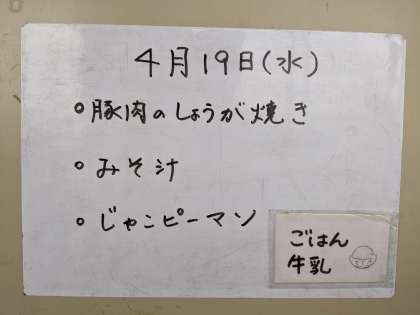 4月19日(水)
○豚肉のしょうが焼き
○みそ汁
○じゃこピーマン
ごはん
牛乳